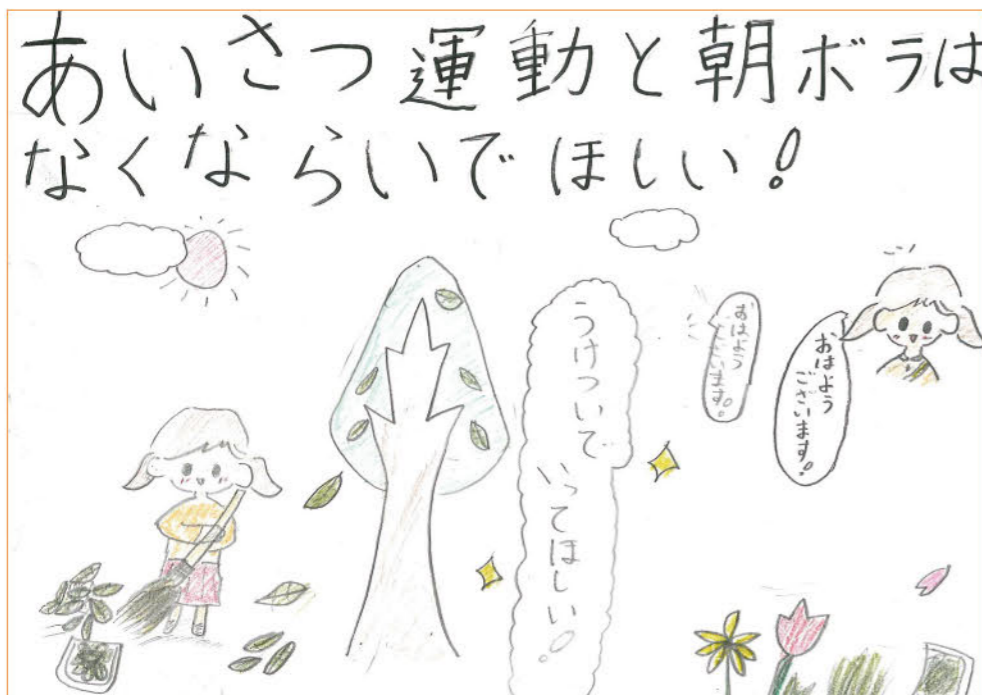 あいさつ運動と朝ボラは
なくならいでほしい!
うけついで
いってほしい!
おはよう
ございます!
おはよう
ございます!